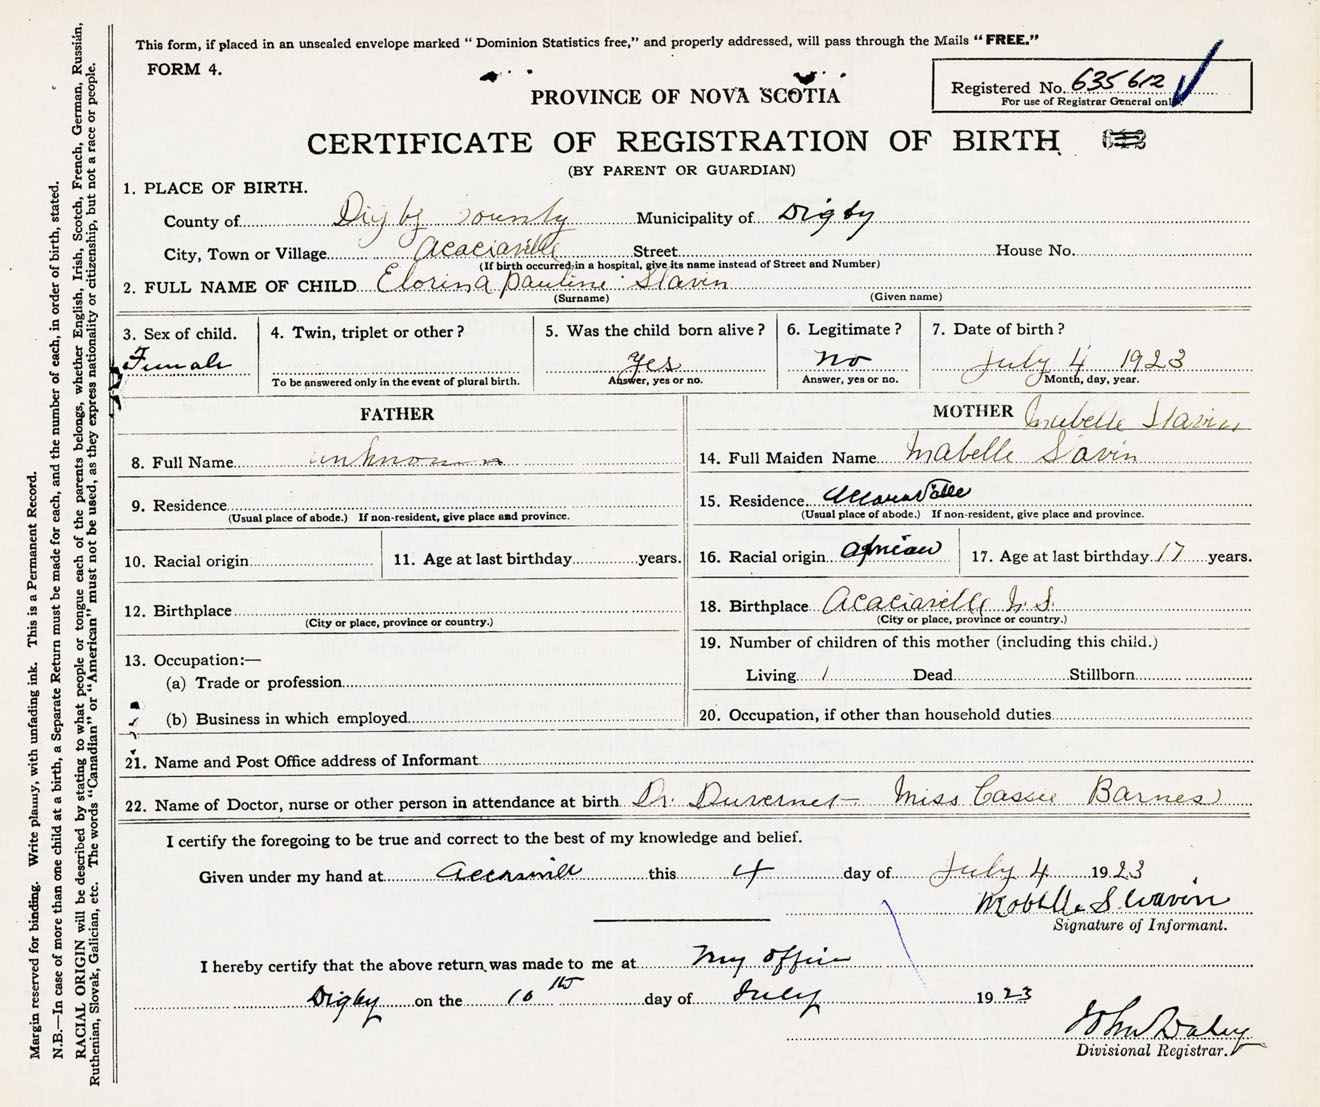 This form, if placed in an unsealed envelope marked “ Dominion Statistics free,” and properly addressed, will pass through the Mails “ FREE.”
FORM 4.
Registered No. 635612
For use of Registrar General only
PROVINCE OF NOVA SCOTIA
CERTIFICATE OF REGISTRATION OF BIRTH
(BY PARENT OR GUARDIAN)
1. PLACE OF BIRTH.
County of Digby County Municipality of Digby
City, Town or Village Acaciaville Street House No.
(If birth occurred in a hospital, give its name instead of Street and Number)
2. FULL NAME OF CHILD Elorina Pauline Slavin
(Surname) (Given name)
3. Sex of child. 4. Twin, triplet or other ? 5. Was the child born alive ? 6. Legitimate ? 7. Date of birth ?
Female yes no July 4 1923
To be answered only in the event of plural birth. Answer, yes or no. Answer, yes or no. Month, day, year.
FATHER MOTHER Mabelle Slavin
8. Full Name unknown 14. Full Maiden Name Mabelle Slavin
9. Residence 15. Residence
(Usual place of abode.) If non-resident, give place and province. (Usual place of abode.) If non-resident, give place and province.
10. Racial origin 11. Age at last birthday years. 16. Racial origin African 17. Age at last birthday 17 years.
12. Birthplace 18. Birthplace Acaciaville N.S.
(City or place, province or country.) (City or place, province or country.)
19. Number of children of this mother (including this child.)
13. Occupation:—
(a) Trade or profession Living 1 Dead Stillborn
(b) Business in which employed 20. Occupation, if other than household duties
21. Name and Post Office address of Informant
22. Name of Doctor, nurse or other person in attendance at birth Dr. Duvernet Miss Cassie Barnes
I certify the foregoing to be true and correct to the best of my knowledge and belief.
Given under my hand at this 4 day of July 4 1923
Signature of Informant.
I hereby certify that the above return was made to me at My office
Digby on the 10th day of July 1923
John Daley
Divisional Registrar.
Margin reserved for binding. Write plainly, with unfading ink. This is a Permanent Record.
N.B.—In case of more than one child at a birth, a Separate Return must be made for each, and the number of each, in order of birth, stated.
RACIAL ORIGIN will be described by stating to what people or tongue each of the parents belongs, whether English, Irish, Scotch, French, German, Russian,
Ruthenian, Slovak, Galician, etc. The words “Canadian” or “American” must not be used, as they express nationality or citizenship, but not a race or people.